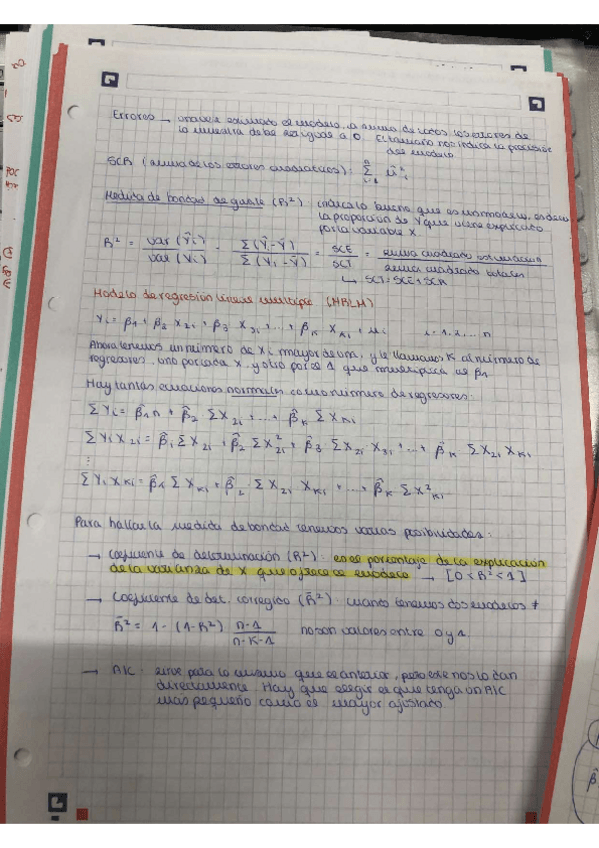 Errores → una vez estimado el modelo, la suma de todos los errores de
la muestra debe ser igual a 0. El tamaño nos indica la precisión
del modelo.
SCR (suma de los errores cuadráticos): Σ û²ᵢ
Medida de bondad de ajuste (R²): indica lo bueno que es un modelo, es decir
la proporción de Y que viene explicado
por la variable X.
R² = var(Ŷi) / var(Yi) = Σ(Ŷi-Ȳ) / Σ(Yi-Ȳ) = SCE / SCT = suma cuadrado estimación / suma cuadrado totales
↳ SCT = SCE + SCR
Modelo de regresión lineal múltiple (MRLM)
Yi = β1 + β2 X2i + β3 X3i + ... + βK XKi + ui i = 1, 2, ... n
Ahora tenemos un número de Xi mayor de uno, y le llamamos K al número de
regresores. Uno por cada X, y otro por el 1 que multiplica al β1
Hay tantas ecuaciones normales como número de regresores:
ΣYi = β̂1 n + β̂2 ΣX2i + ... + β̂K ΣXKi
ΣYi X2i = β̂1 ΣX2i + β̂2 ΣX²2i + β̂3 ΣX2i X3i + ... + β̂K ΣX2i XKi
⋮
ΣYi XKi = β̂1 ΣXKi + β̂2 · ΣX2i XKi + ... + β̂K ΣX²Ki
Para hallar la medida de bondad tenemos varias posibilidades:
→ Coeficiente de determinación (R²): es el porcentaje de la explicación
de la varianza de X que ofrece el modelo → [0<R²<1]
→ Coeficiente de det. corregido (R̄²): cuando tenemos dos modelos ≠
R̄² = 1 - (1-R²) n-1 / n-K-1 no son valores entre 0 y 1
→ AIC: sirve para lo mismo que el anterior, pero este nos lo dan
directamente. Hay que elegir el que tenga un AIC
más pequeño como el mayor ajustado.
β̂